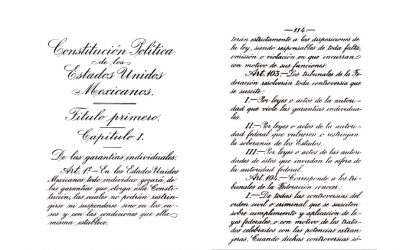 Constitución Política
de los
Estados Unidos
Mexicanos.
Título primero.
Capítulo I.
De las garantías individuales.
Art. 1º— En los Estados Unidos
Mexicanos, todo individuo gozará de
las garantías que otorga esta Consti-
tución, las cuales no podrán restrin-
girse ni suspenderse sino en los ca-
sos y con las condiciones que ella
misma establece.
—114—
tarán estrictamente a las disposiciones de
la ley, siendo responsables de toda falta,
omisión o violación en que incurran
con motivo de sus funciones.
Art. 103.—Los tribunales de la Fe-
deración resolverán toda controversia que
se suscite:
I.— Por leyes o actos de la autori-
dad que viole las garantías individua-
les.
II.—Por leyes o actos de la autori-
dad federal que vulneren o restrinjan
la soberanía de los Estados.
III.—Por leyes o actos de las auto-
dades de éstos que invadan la esfera de
la autoridad federal.
Art. 104.— Corresponde a los tri-
bunales de la Federación conocer:
I.—De todas las controversias del
orden civil o criminal que se susciten
sobre cumplimiento y aplicación de le-
yes federales, o con motivo de los trata-
dos celebrados con las potencias extran-
jeras. Cuando dichas controversias só-